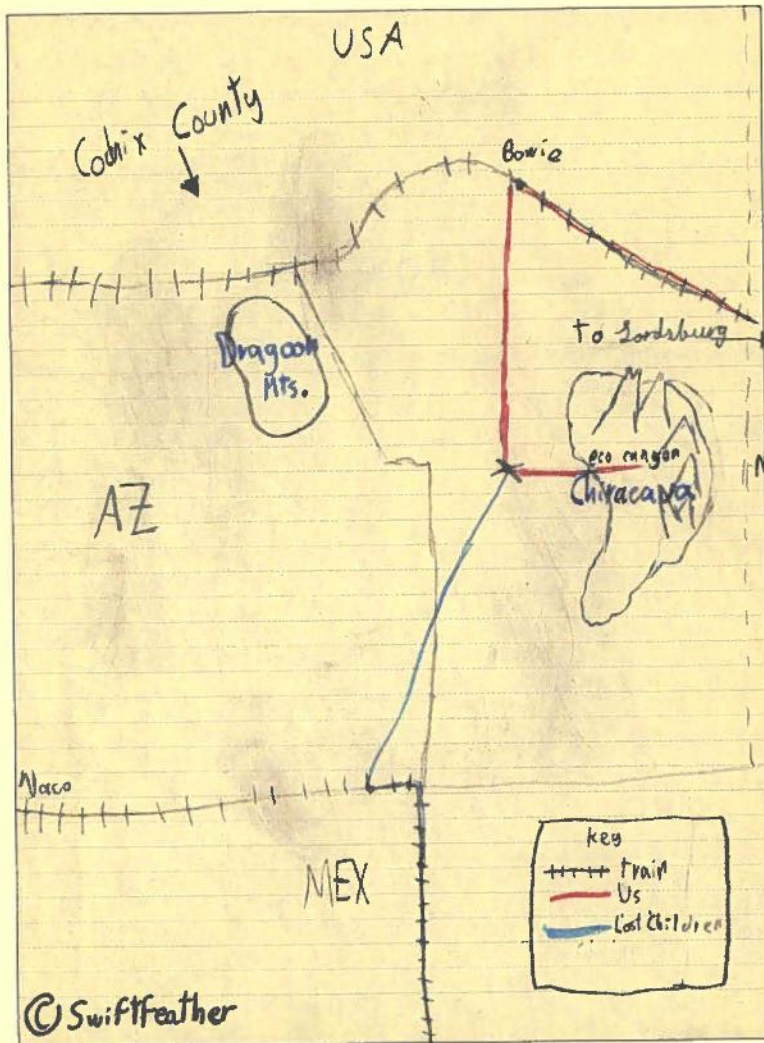 USA
Cochix County
Bowie
to Lordsburg
Dragoon
Mts.
eco canyon
Chiracaua
AZ
N
Naco
MEX
key
train
Us
Lost Children
© Swiftfeather